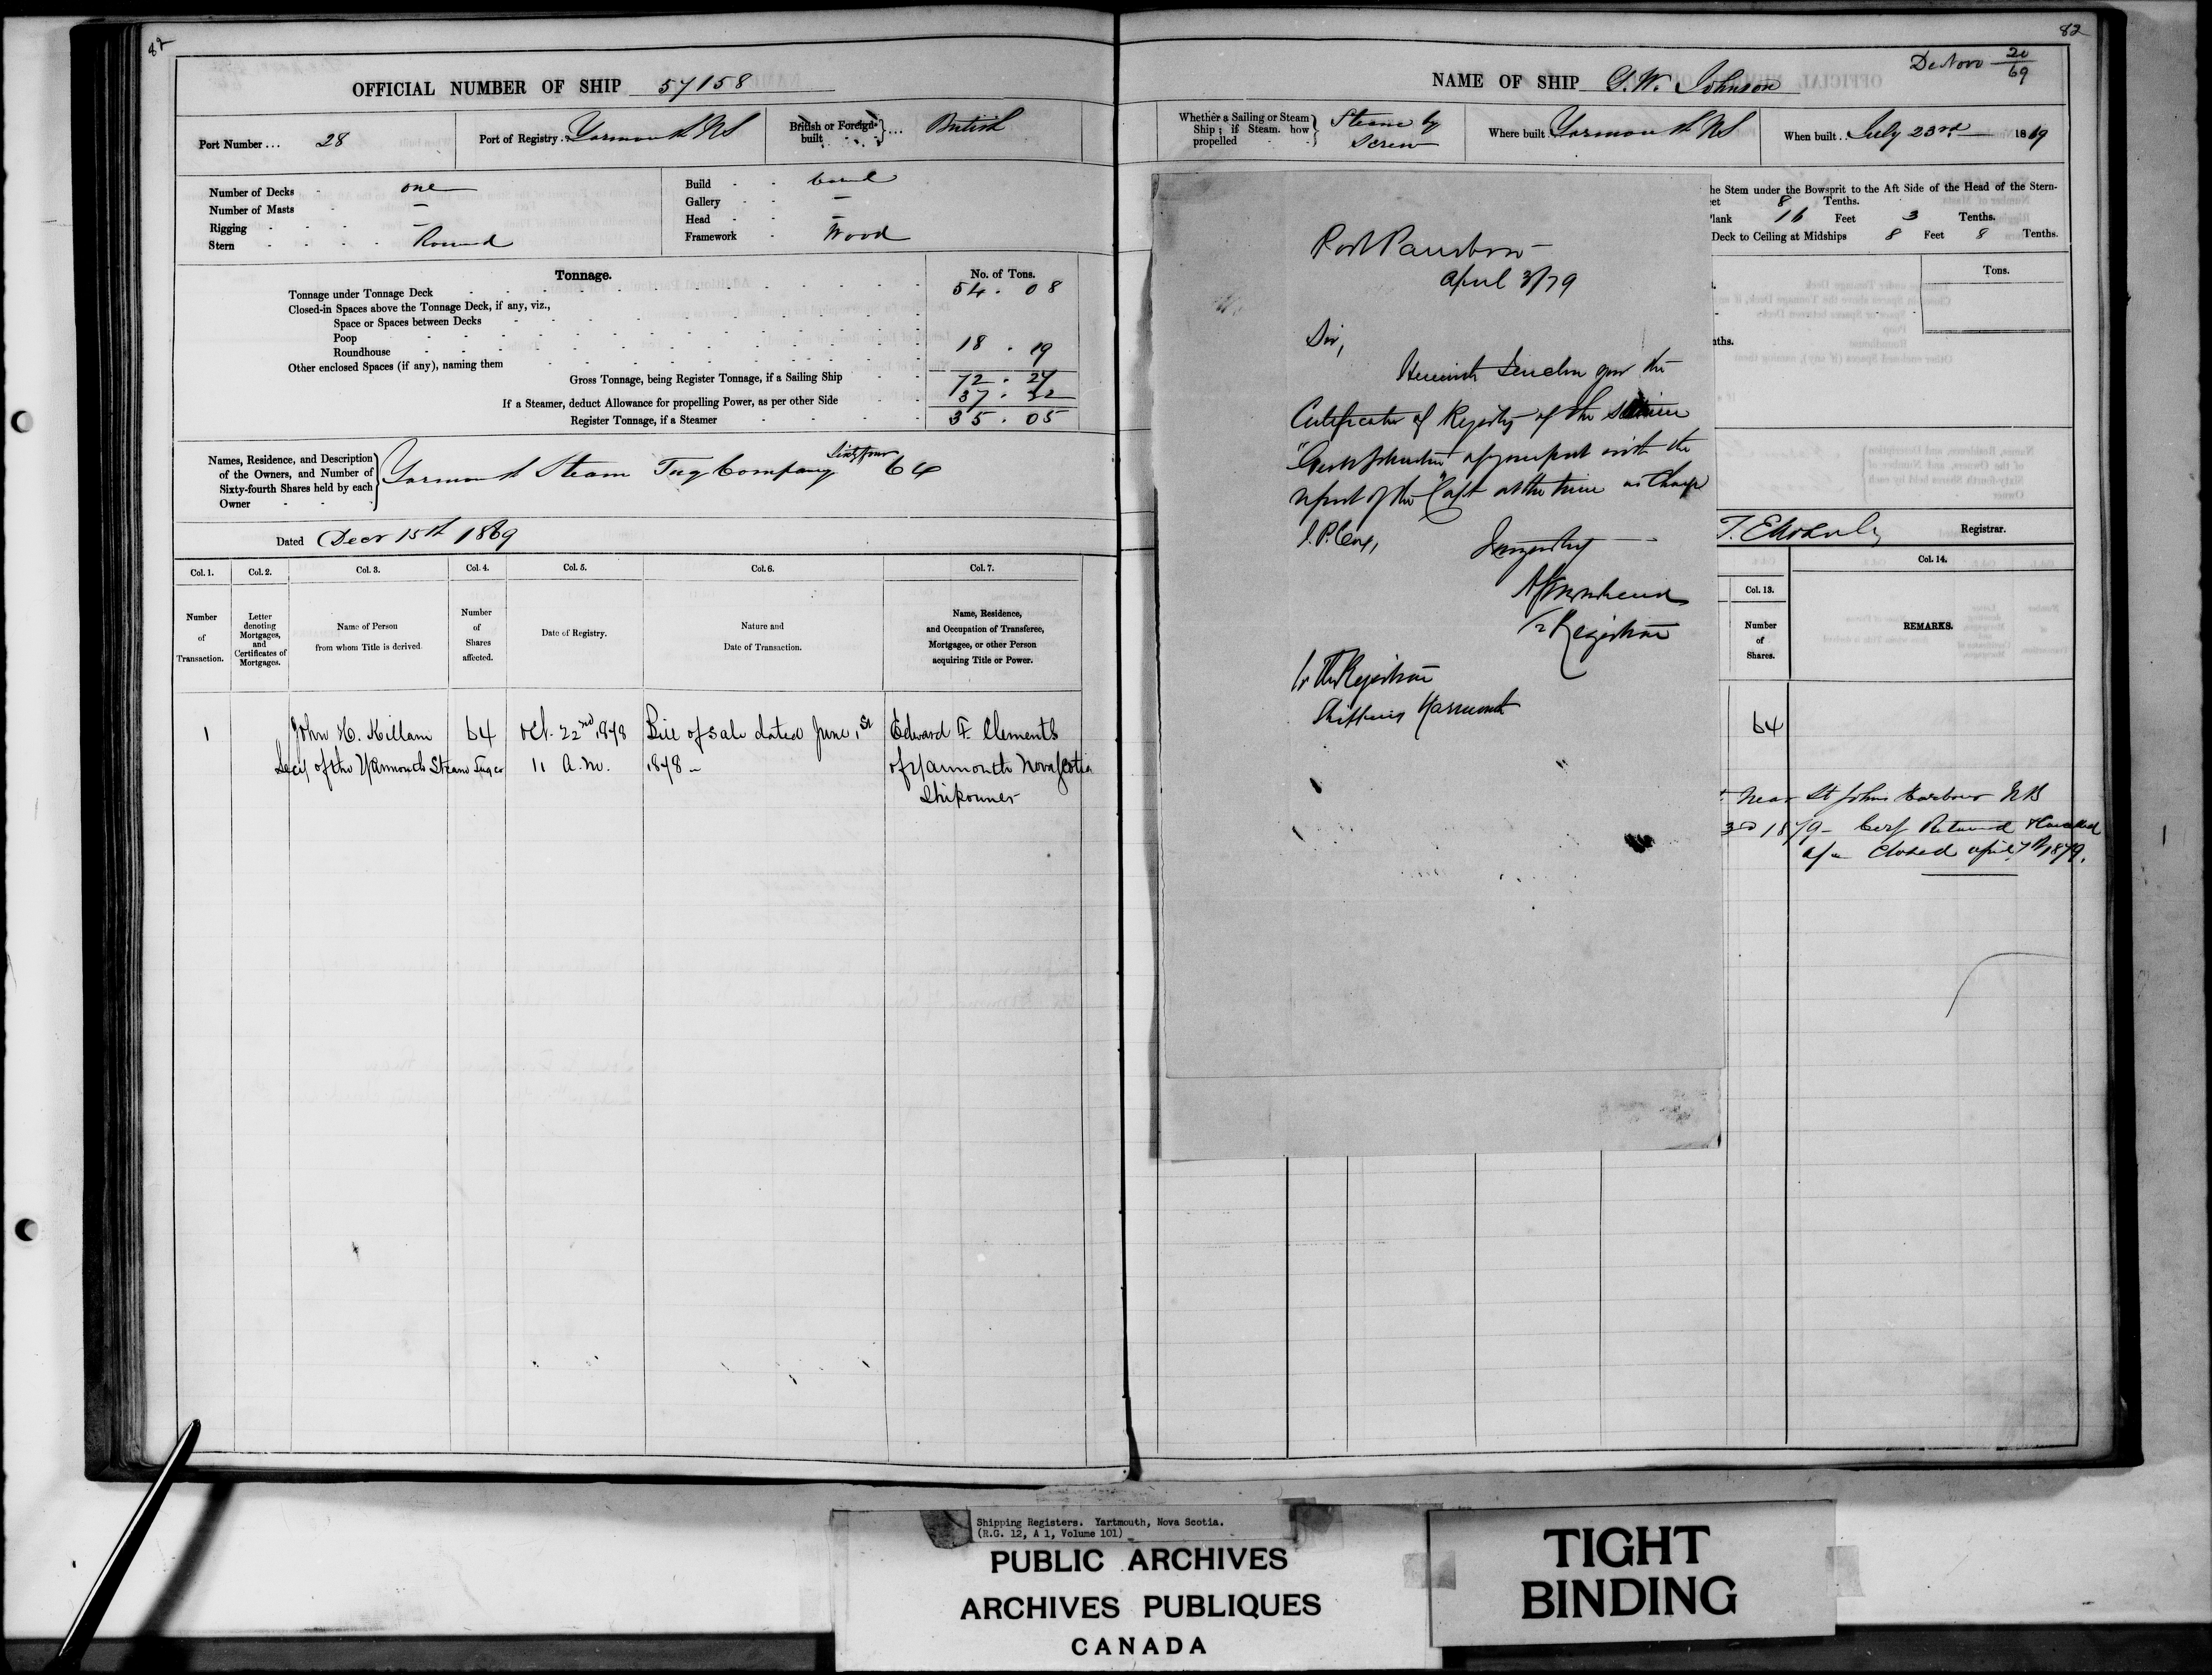 82
OFFICIAL NUMBER OF SHIP 57158
Port Number... 28
Port of Registry. Yarmouth NS
British or Foreign built } ... British
Number of Decks - one
Number of Masts - –
Rigging - –
Stern - Round
Build - Carvel
Gallery - –
Head - –
Framework - Wood
Tonnage.
No. of Tons.
Tonnage under Tonnage Deck 54 . 08
Closed-in Spaces above the Tonnage Deck, if any, viz.,
Space or Spaces between Decks
Poop
Roundhouse 18 . 19
Other enclosed Spaces (if any), naming them
Gross Tonnage, being Register Tonnage, if a Sailing Ship 72 . 27
If a Steamer, deduct Allowance for propelling Power, as per other Side 37 . 22
Register Tonnage, if a Steamer 35 . 05
Names, Residence, and Description
of the Owners, and Number of
Sixty-fourth Shares held by each
Owner
Yarmouth Steam Tug Company Sixty four 64
Dated Decr 15th 1869
Col. 1.
Col. 2.
Col. 3.
Col. 4.
Col. 5.
Col. 6.
Col. 7.
Number of Transaction.
Letter denoting Mortgages, and Certificates of Mortgages.
Name of Person from whom Title is derived.
Number of Shares affected.
Date of Registry.
Nature and Date of Transaction.
Name, Residence, and Occupation of Transferee, Mortgagee, or other Person acquiring Title or Power.
1 John H. Killam 64 Oct. 22nd 1878 Bill of sale dated June 1st Edward F. Clements
Secy of the Yarmouth Steam Tug Co 11 A.M. 1878 – of Yarmouth Nova Scotia
Shipowner
82
De Novo 20/69
NAME OF SHIP G. W. Johnson
Whether a Sailing or Steam
Ship; if Steam, how
propelled
Steam by
Screw
Where built. Yarmouth NS
When built.. July 23rd 1869
he Stem under the Bowsprit to the Aft Side of the Head of the Stern-
et 8 Tenths.
lank 16 Feet 3 Tenths.
Deck to Ceiling at Midships 8 Feet 8 Tenths.
Tons.
ths.
Registrar.
Col. 13.
Col. 14.
Number of Shares.
REMARKS.
64
near St Johns Harbour NB
3rd 1879 – Cert Returned & Cancelled
a/c Closed april 7th 1879.
Port Parrsboro –
April 3/79
Sir,
Herewith I enclose you the
Certificate of Registry of the
of your port with the
report of the Capt at the time
J. P. Cox,
Registrar
To The Registrar
Shipping Yarmouth
Shipping Registers. Yartmouth, Nova Scotia.
(R.G. 12, A 1, Volume 101)
PUBLIC ARCHIVES
ARCHIVES PUBLIQUES
CANADA
TIGHT
BINDING